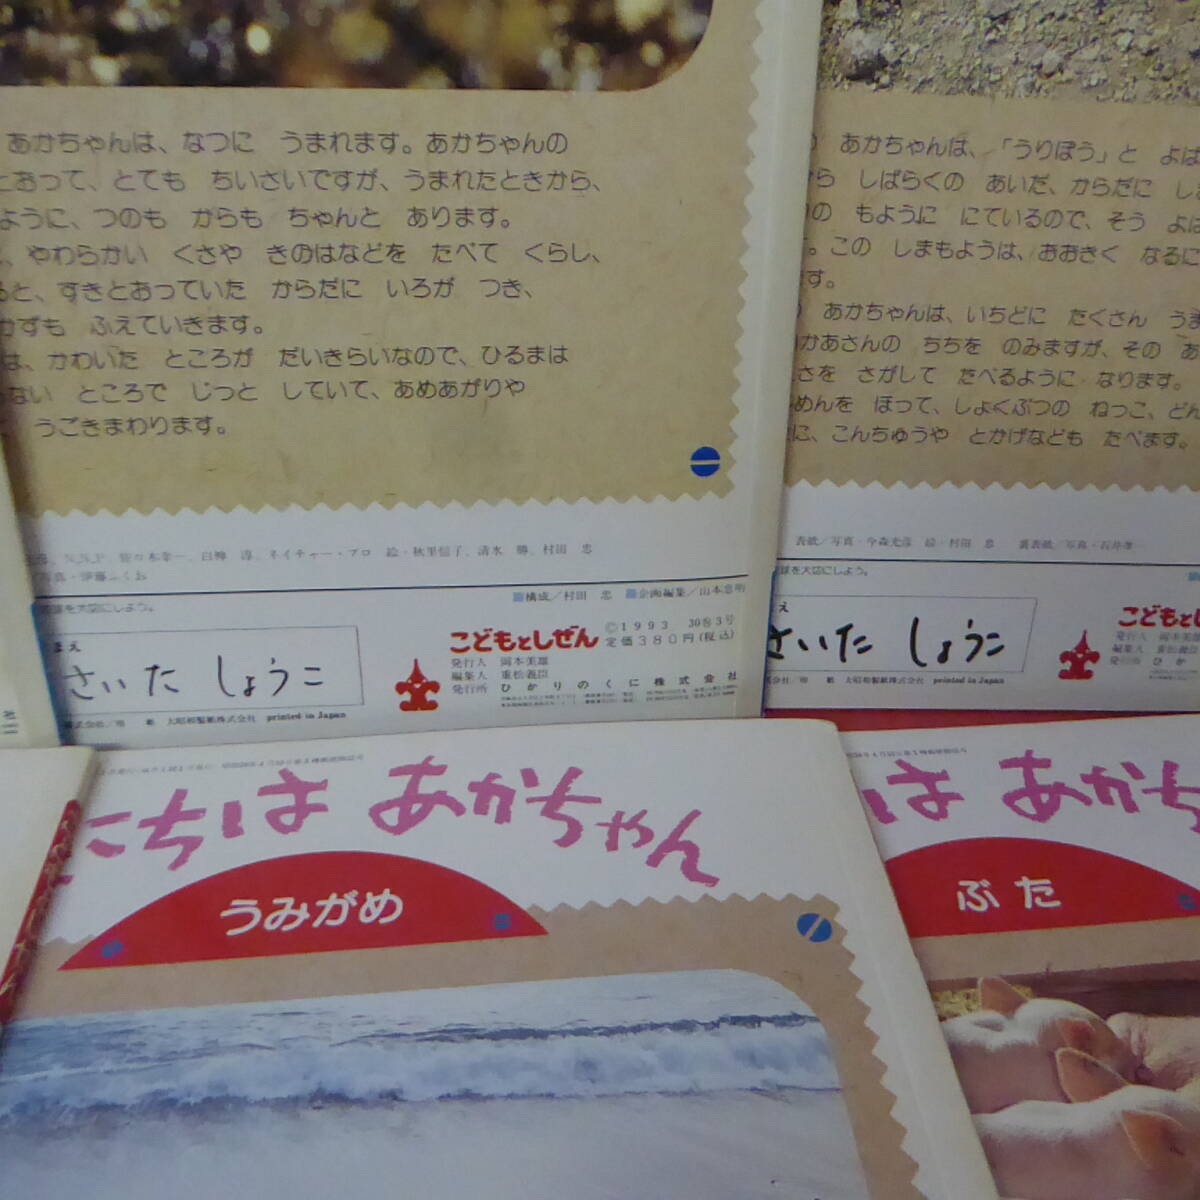 あかちゃんは、なつに　うまれます。あかちゃんの
とおって、とても　ちいさいですが、うまれたときから、
ように、つのも　からも　ちゃんと　あります。
、やわらかい　くさや　きのはなどを　たべて　くらし、
ると、すきとおっていた　からだに　いろが　つき、
かずも　ふえていきます。
は、かわいた　ところが　だいきらいなので、ひるまは
ない　ところで　じっと　していて、あめあがりや
うごきまわります。
N.N.P　佐々木幸一、白柳　淳、ネイチャー・プロ　絵・秋里信子、清水　勝、村田　忠
写真・伊藤ふくお
球を大切にしよう。
■構成／村田　忠　■企画編集／山本忠明
まえ
さいた しょうこ
こどもとしぜん
©1993　30巻3号
定価380円(税込)
発行人　岡本美雄
編集人　重松義臣
発行所　ひかりのくに株式会社
株式会社／用　紙　大昭和製紙株式会社　printed in Japan
の　あかちゃんは、「うりぼう」と　よば
から　しばらくの　あいだ、からだに　し
りの　もように　にているので、そう　よば
す。この　しまもようは、おおきく　なるに
ます。
あかちゃんは、いちどに　たくさん　うま
かあさんの　ちちを　のみますが、その　あ
さを　さがして　たべるように　なります。
めんを　ほって、しょくぶつの　ねっこ、どん
に、こんちゅうや　とかげなども　たべます。
表紙／写真・今森光彦　絵・村田　忠　裏表紙／写真・石井孝一
球を大切にしよう。
え
さいた しょうこ
こどもとし
発行人　岡本美雄
編集人　重松義臣
発行所　ひか
株式会社／用　紙　大昭和製紙株式会社　printed in Japan
にちは あかちゃん
うみがめ
は あかち
ぶた